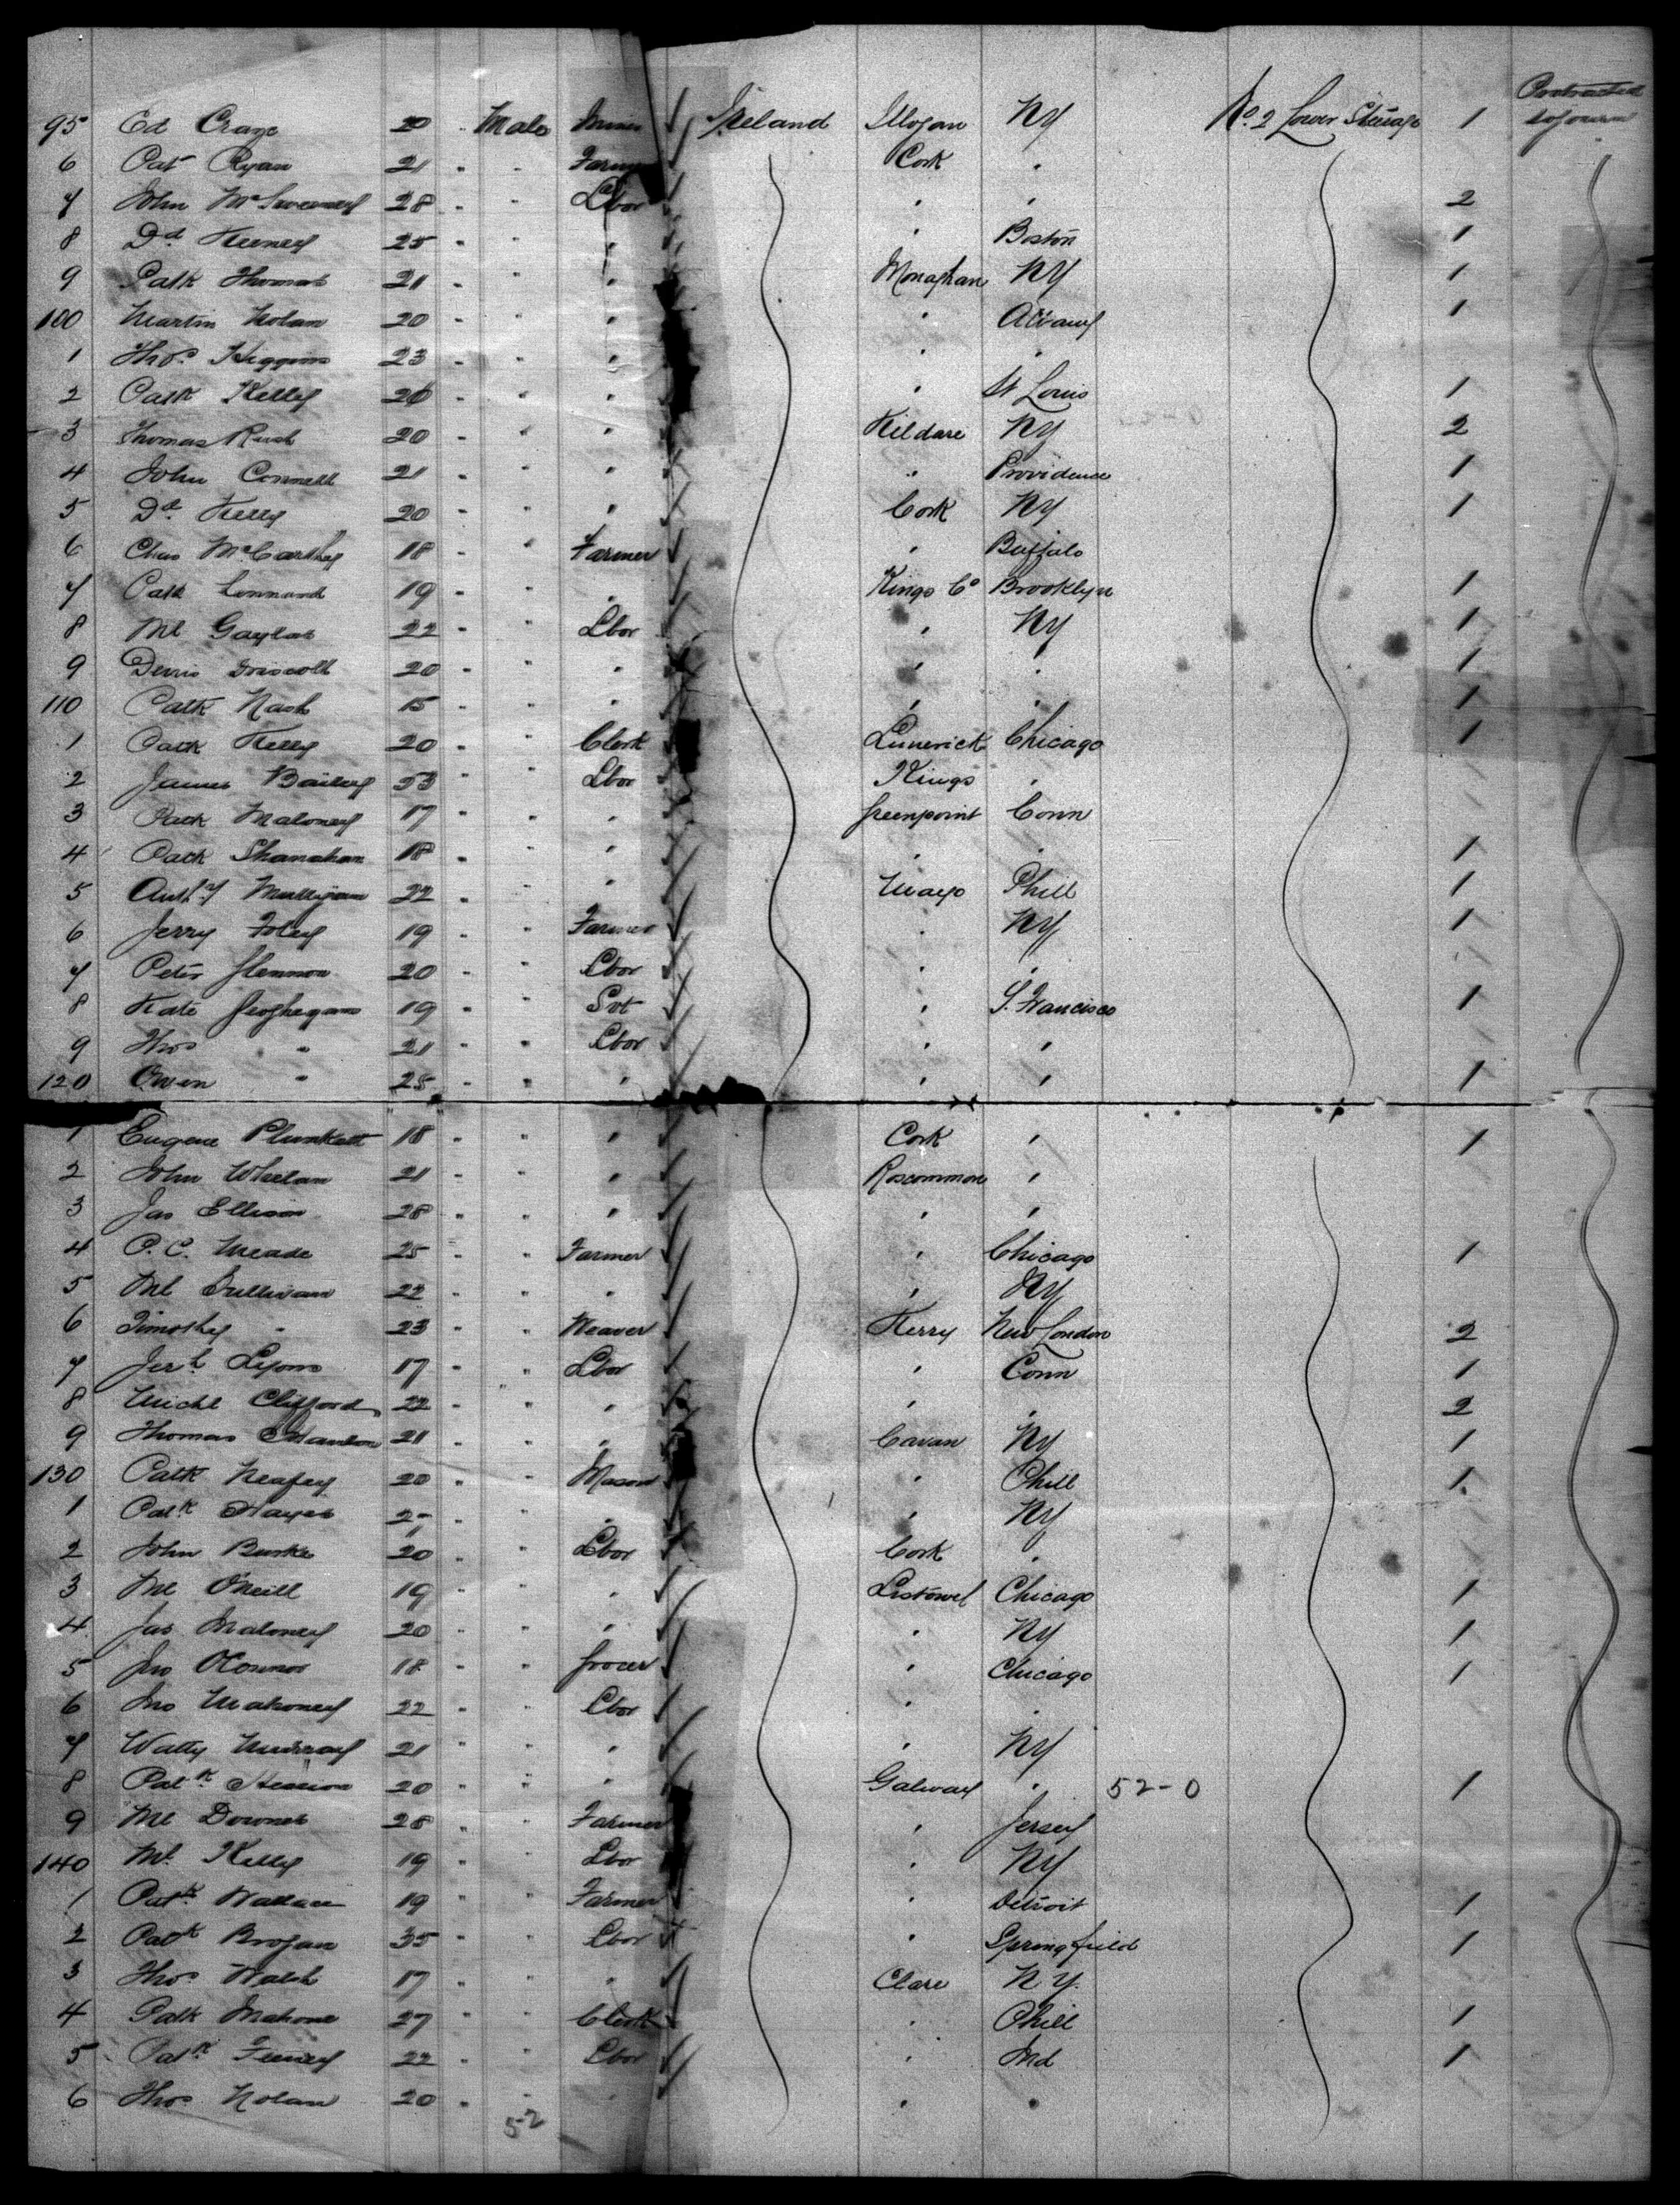 Protracted
95 Ed Craze 20 " Male Miner Ireland Illogan NY No. 2 Lower Steerage 1 sojourn
6 Pat Ryan 21 " " Farmer Cork "
7 John McSweeney 28 " " Lbor " " 2
8 Dd Feeney 25 " " " " Boston 1
9 Patk Thomas 21 " " " Monaghan NY 1
100 Martin Nolan 20 " " " " Albany 1
1 Thos. Higgins 23 " " " " "
2 Patk Kelly 20 " " " " St Louis 1
3 Thomas Rush 20 " " " Kildare NY 2
4 John Connell 21 " " " " Providence 1
5 Dl Kelly 20 " " " Cork NY 1
6 Chas McCarthy 18 " " Farmer " Buffalo
7 Patk Lennard 19 " " " Kings Co Brooklyn 1
8 Ml 22 " " Lbor " NY 1
9 Denis Driscoll 20 " " " " " 1
110 Patk Nash 15 " " " " " 1
1 Patk Kelly 20 " " Clerk Limerick Chicago 1
2 James Bailey 53 " " Lbor Kings "
3 Patk Maloney 17 " " " Greenpoint Conn
4 Patk Shanahan 18 " " " " " 1
5 Anthy Mulligan 22 " " " Mayo Phill 1
6 Jerry Foley 19 " " Farmer " NY 1
7 Peter Glennon 20 " " Lbor " "
8 Kate Geoghegan 19 " " Svt " S. Francisco 1
9 Thos " 21 " " Lbor " "
120 Owen " 25 " " " " " 1
1 Eugene Plunkett 18 " " " Cork " 1
2 John Whelan 21 " " " Roscommon "
3 Jas Ellison 28 " " " " "
4 P. C. Meade 25 " " Farmer " Chicago 1
5 Ml Sullivan 22 " " " " NY
6 Timothy " 23 " " Weaver Kerry New London 2
7 Jerh Lyons 17 " " Lbor " Conn 1
8 Michl Clifford 22 " " " " " 2
9 Thomas Hanlon 21 " " " Cavan NY 1
130 Patk Neafey 20 " " Mason " Phill 1
1 Patk Hayes " " " " NY
2 John Burke 20 " " Lbor Cork "
3 Ml O'Neill 19 " " " Listowel Chicago 1
4 Jas Maloney 20 " " " " NY 1
5 Jno OConnor 18 " " Grocer " Chicago 1
6 Jno Mahoney 22 " " Lbor " "
7 Watty Murray 21 " " " " NY
8 Patk Hession 20 " " " Galway " 52-0 1
9 Ml Downes 28 " " Farmer " Jersey
140 Ml Kelly 19 " " Lbor " NY
1 Patk Wallace 19 " " Farmer " Detroit 1
2 Patk Brogan 35 " " Lbor " Springfield 1
3 Thos Walsh 17 " " " Clare N Y.
4 Patk Mahone 27 " " Clerk " Phill 1
5 Patk Feeney 22 " " Lbor " Md 1
6 Thos Nolan 20 " " " " "
52